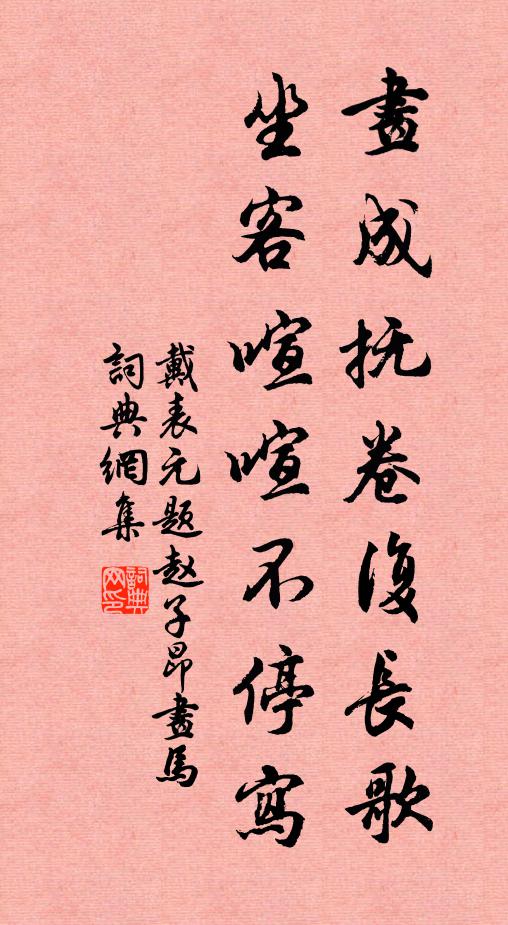 畫成抚卷復長歌
坐客喧喧不停寫
戴表元题赵子昂畫馬
詞典網集
詞典网印